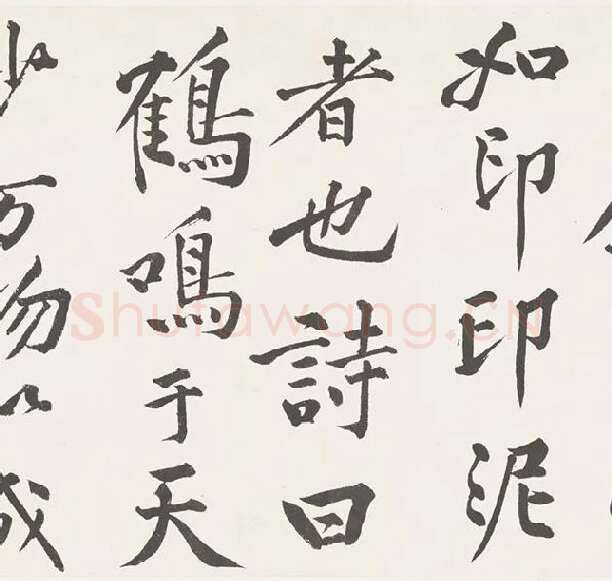 如印印泥
者也詩曰
鶴鳴于天
万物以成
Shufawang.CN